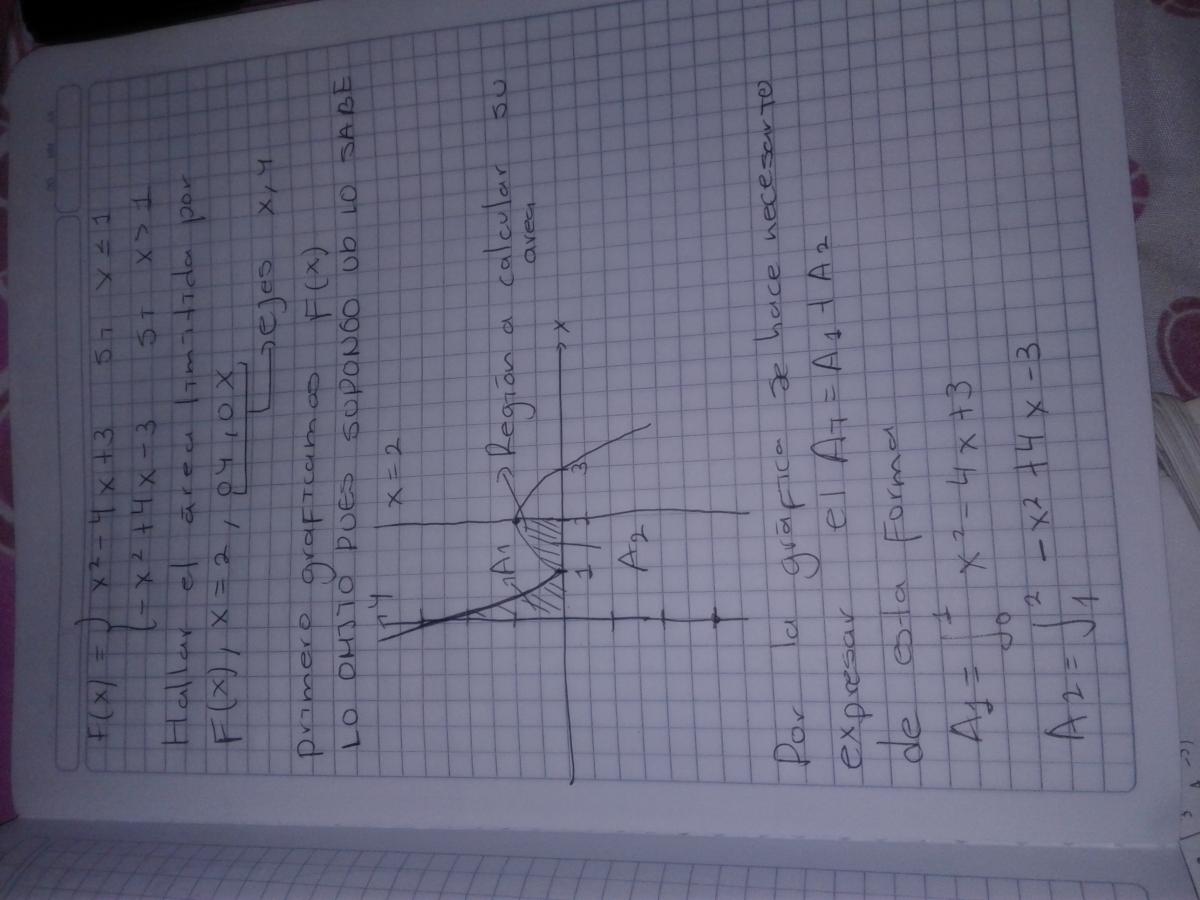 F(x) = { x² - 4x + 3 si x ≤ 1
{ -x² + 4x - 3 si x > 1
Hallar el área limitida por
F(x), x = 2, 0y, 0x
→ ejes x, y
primero graficamos F(x)
LO OMITO PUES SUPONGO UD LO SABE
y
x = 2
A1
Región a calcular su
area
x
1
2
3
A2
Por la gráfica se hace necesario
expresar el A_T = A1 + A2
de esta forma
A1 = ∫₀¹ x² - 4x + 3
A2 = ∫₁² -x² + 4x - 3